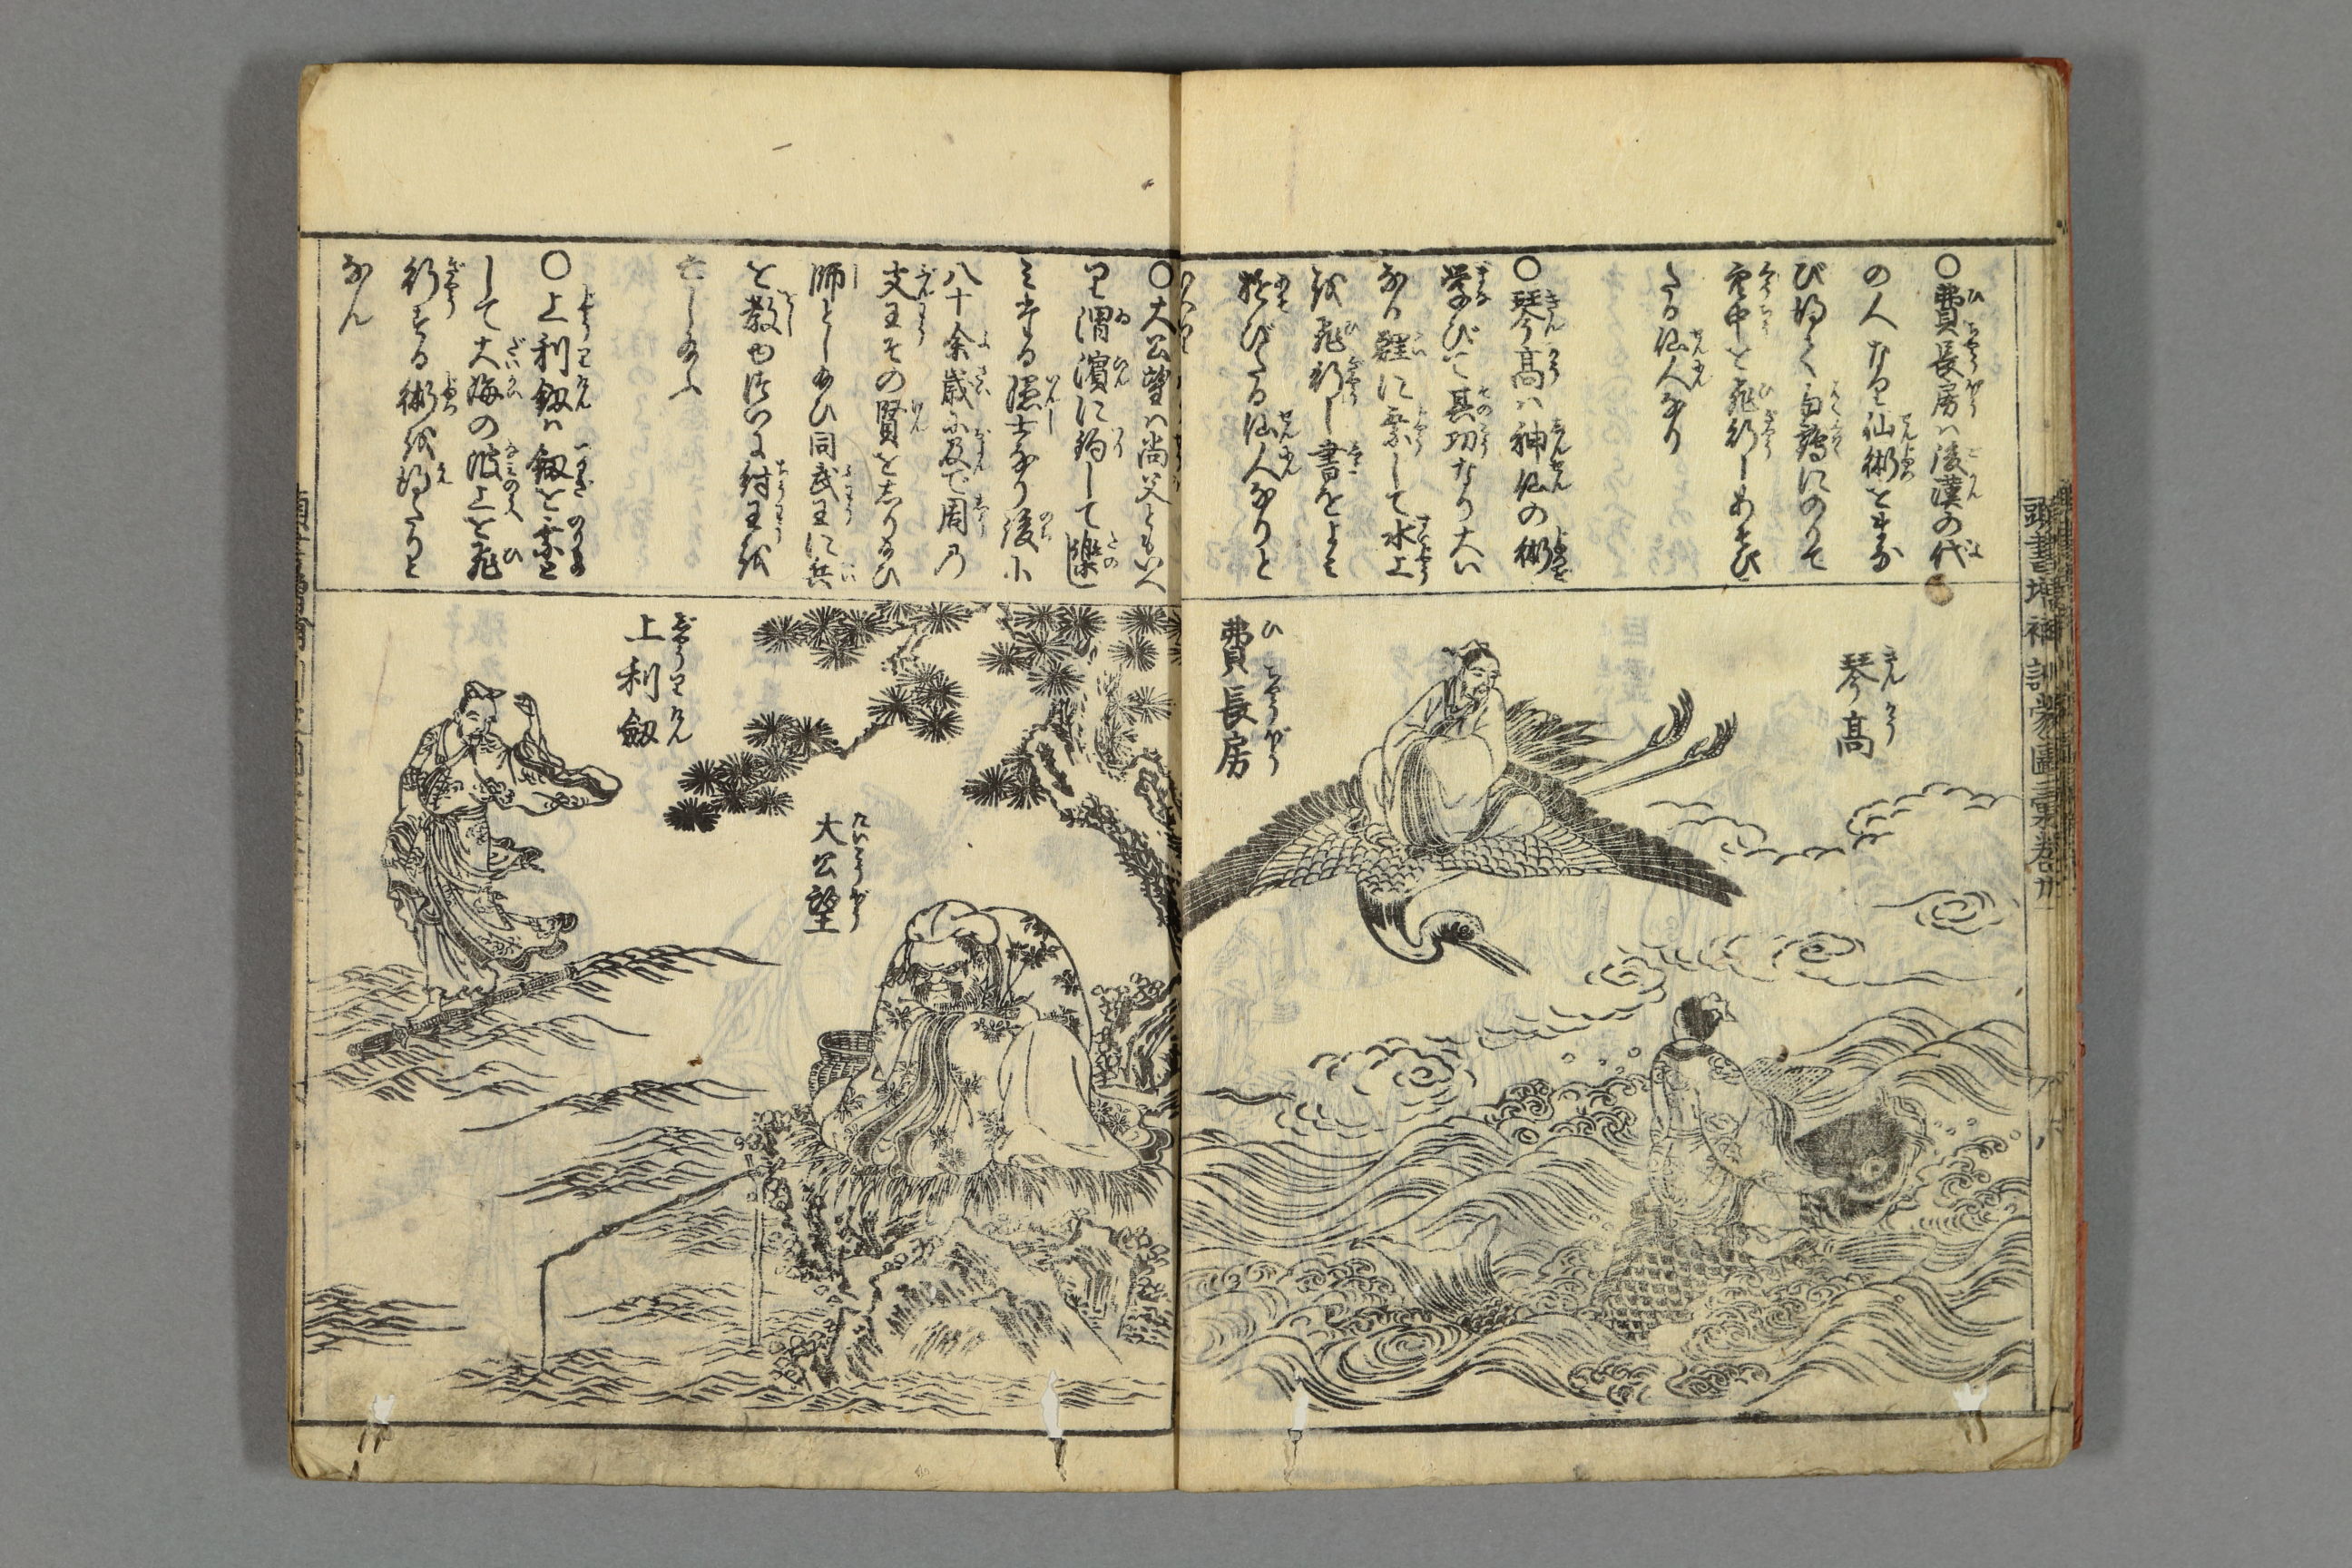 ○費長房ハ後漢の代
の人なり仙術をまな
び得て白鶴にのりて
空中を飛行しあそび
たる仙人なり
○琴高ハ神仙の術
学びて其功なり大い
なる鯉に乗して水上
を飛行し書をよみ
遊びたる仙人なりと
いへり
○大公望ハ尚父ともいへ
り渭濱に釣して樂
ミする隠士なり後に
八十余歳に及で周の
文王その賢をしり給ひ
師とし給ひ同武王に兵
を教由終に紂王を
亡し給ふ
○上利劔ハ劔を乗と
して大海の波上を飛
行する術を得たりと
なん
琴高
費長房
大公望
上利劔
頭書増補訓蒙圖彙巻